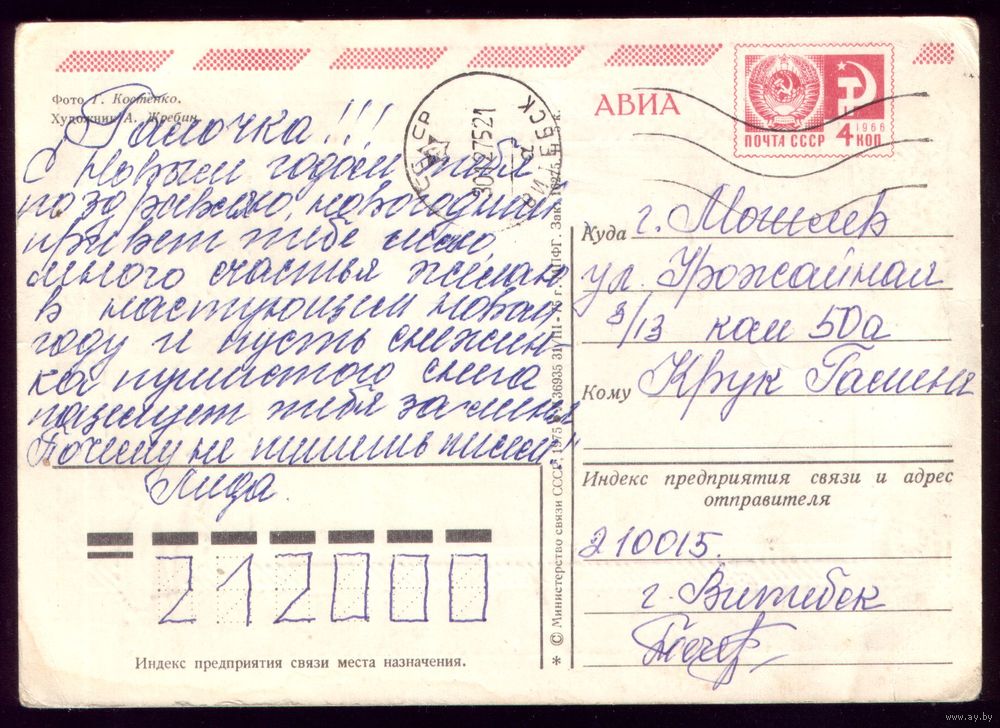 Фото Г. Костенко.
Художник А. Жребин.
Галочка!!!
С Новым годом тебя
поздравляю, новогодний
привет тебе шлю,
много счастья желаю
в наступающем новом
году и пусть снежин-
ка пушистого снега
поцелует тебя за меня
Почему не пишешь писем
Лида.
212000
Индекс предприятия связи места назначения.
* © Министерство связи СССР, 1975
36935 31/III-75 г. МПФГ. Зак. 16275.
ВИТЕБСК
АВИА
ПОЧТА СССР
1966
4 КОП
Куда г. Могилев
ул. Урожайная
3/13 ком 50а
Кому Крук Галине
Индекс предприятия связи и адрес
отправителя
210015.
г. Витебск
www.ay.by